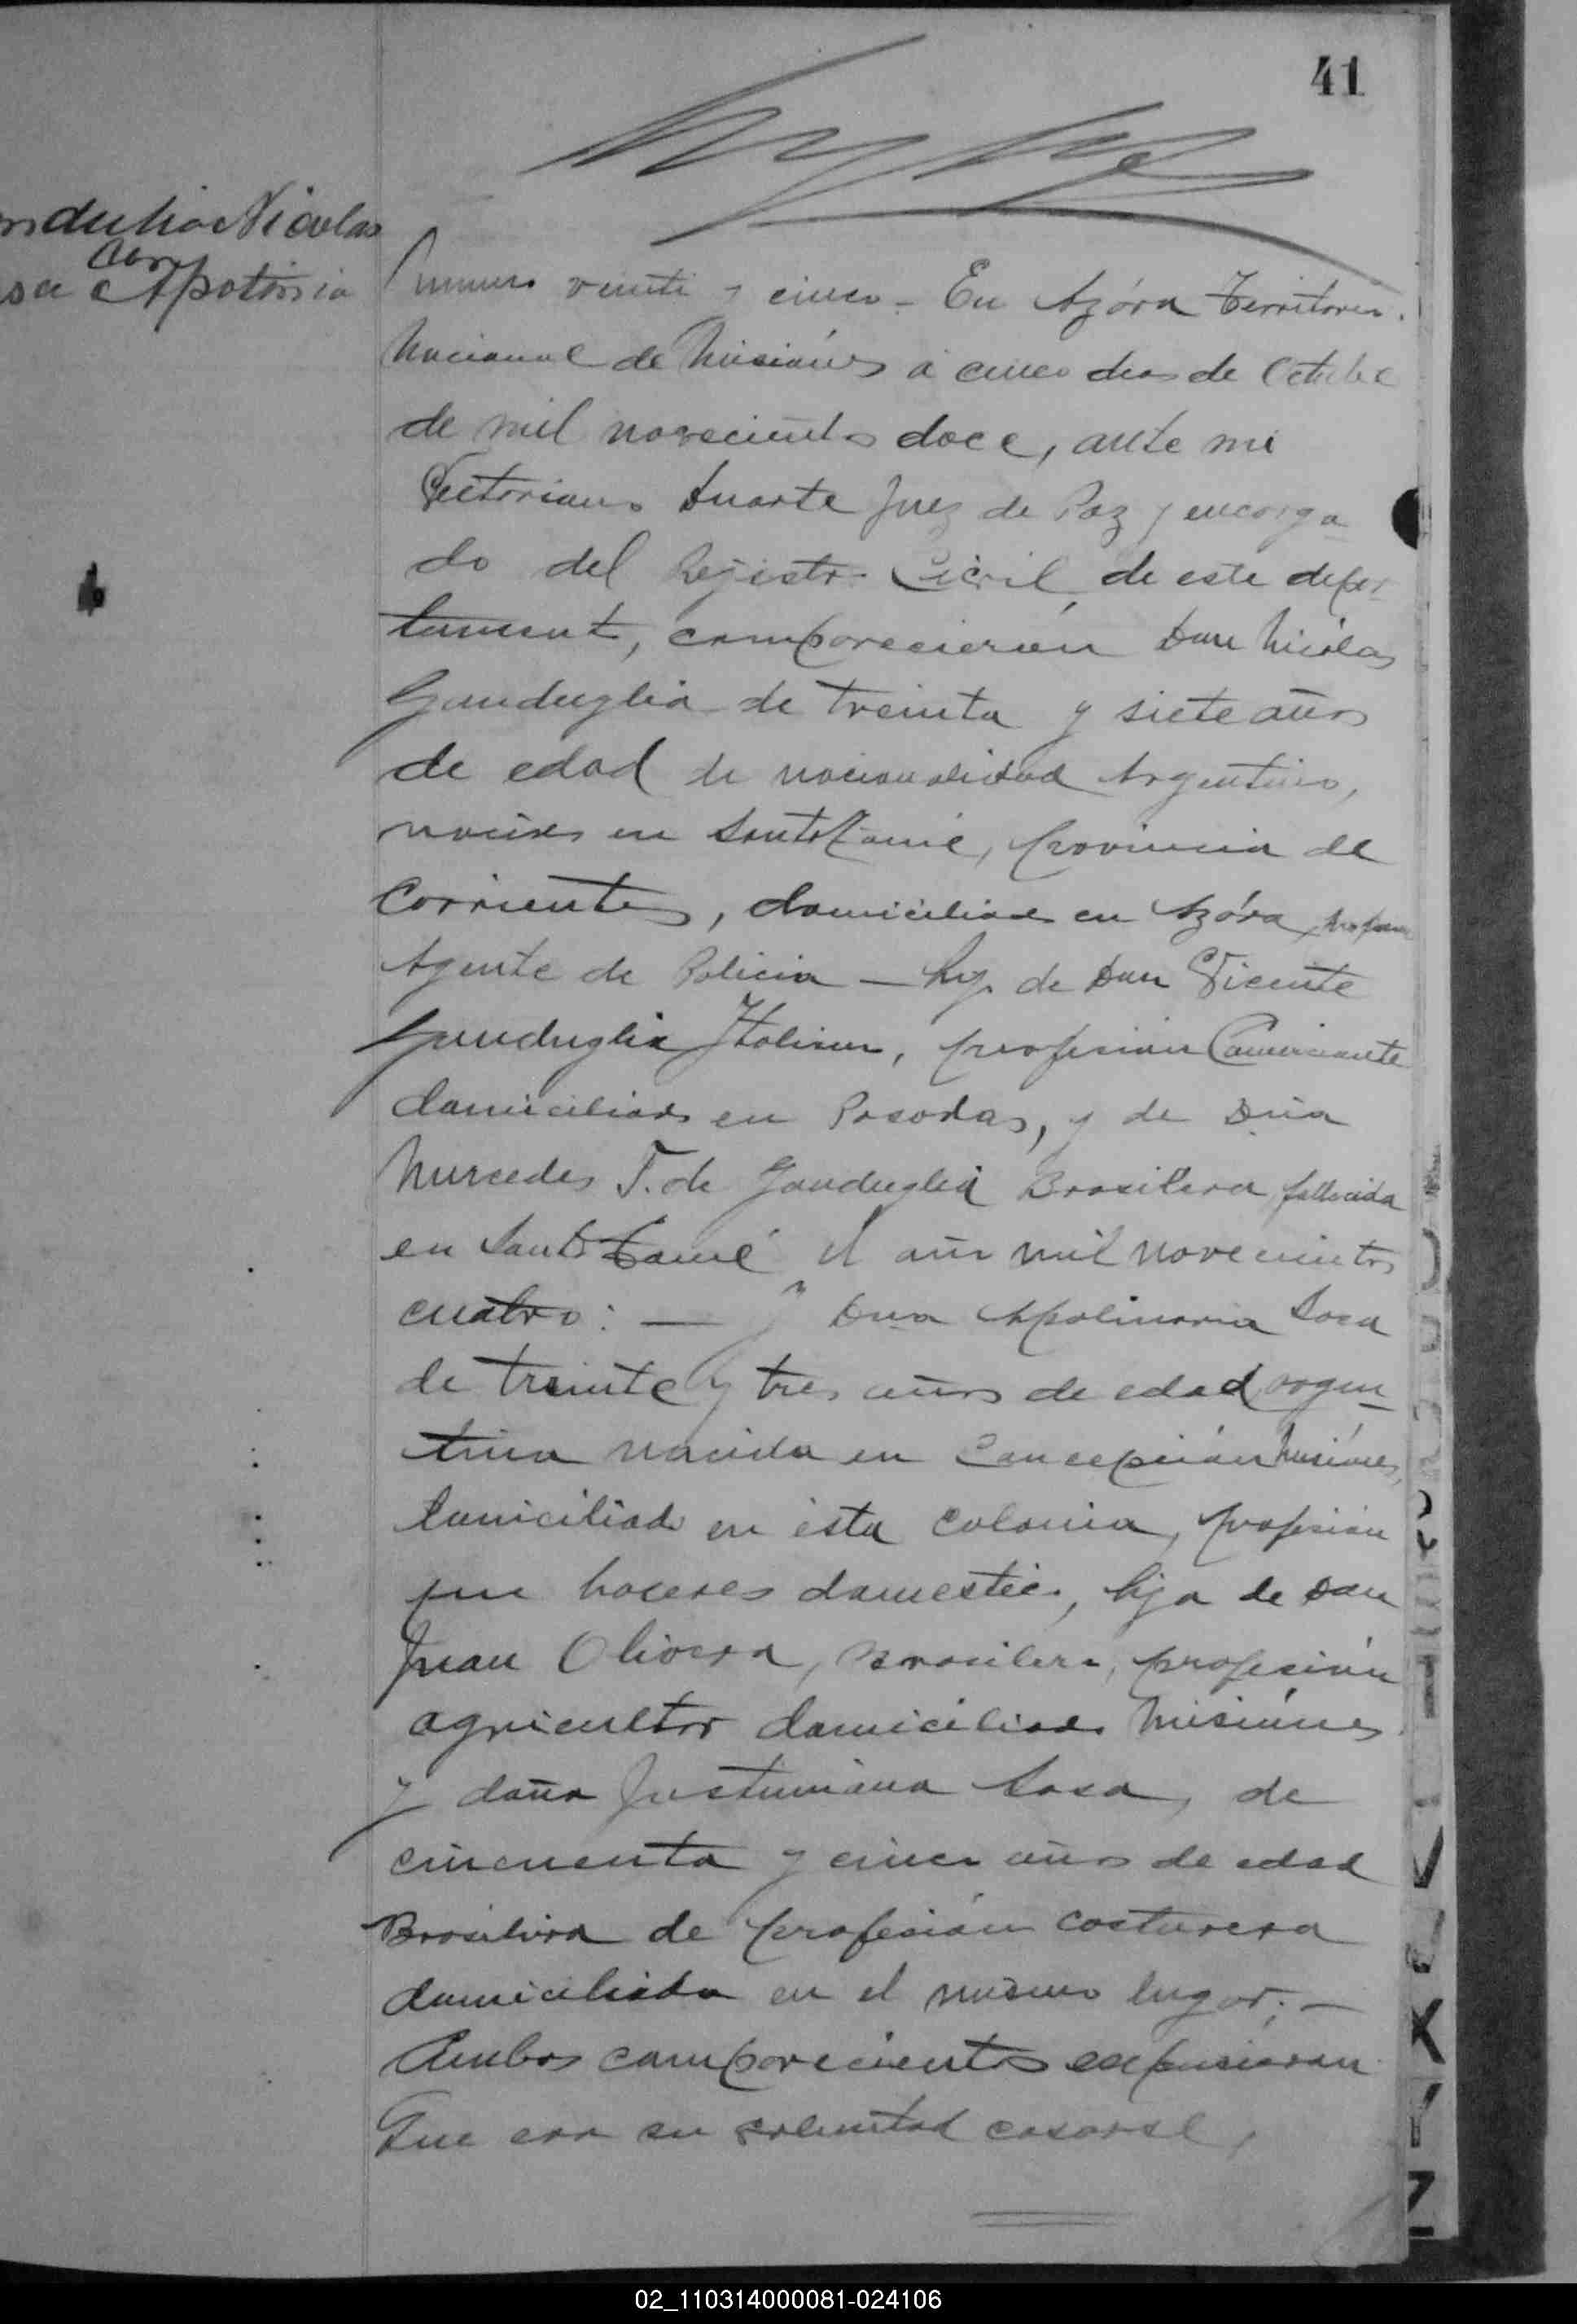 41
ndulia Nicolas
con
sa Apolonia
Numero veinte y cinco - En Azára Territorio
Nacional de Misiónes á cinco dias de Octubre
de mil novecientos doce, ante mi
Victoriano Duarte Juez de Paz y encarga
do del Rejistro Civil de este depar
tament, comparecierón Don Nicólas
Ganduglia de treinta y siete años
de edad de nacionalidad Argentino,
nacido en Santo Tomé, provincia de
Corrientes, domiciliado en Azára
Agente de Policia — hijo de Don Vicente
Ganduglia Italiano, profesión Comerciante
domiciliado en Posadas, y de Dña
Mercedes T. de Ganduglia Brasilera fallecida
en Santo Tomé el año mil novecientos
cuatro: — y Dña Apolinaria Sosa
de treinta y tres años de edad argen
tina nacida en Concepción Misiónes,
domiciliada en ésta colonia, profesión
que haceres domestico, hija de Don
Juan Olivera, Brasilero, profesión
agricultor domiciliado Misiónes
y doña Justiniana Sosa, de
cincuenta y cinco años de edad
Brasilera de profesión costurera
domiciliada en el mismo lugar; —
Ambos comparecientes expusieron
Que era su voluntad casarse,
V
X
Y
Z
02_110314000081-024106